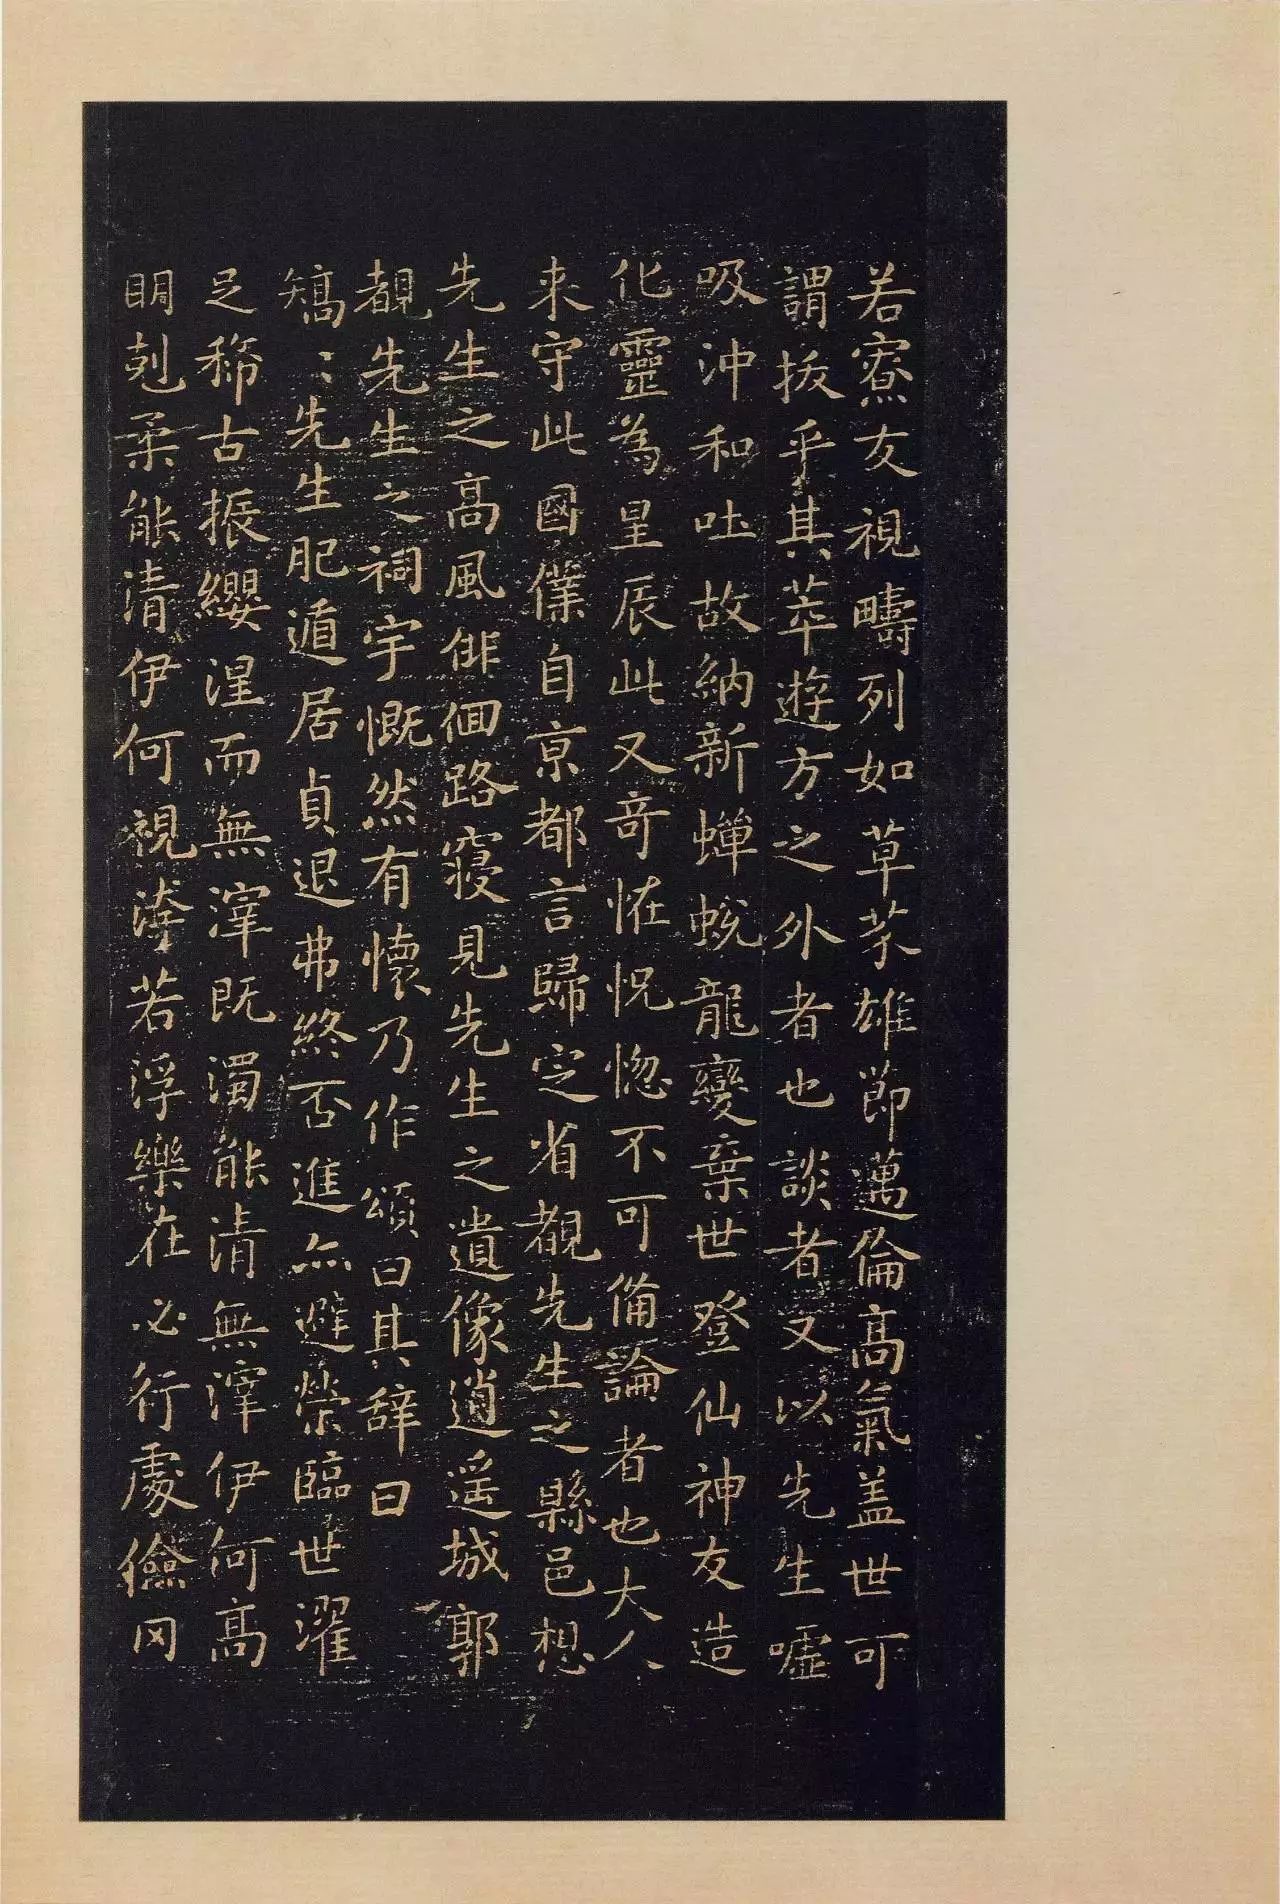 若寮友視疇列如草芥雄節邁倫高氣盖世可
謂拔乎其萃遊方之外者也談者又以先生噓
吸沖和吐故納新蟬蛻龍變棄世登仙神友造
化靈為星辰此又奇怪怳惚不可備論者也大人
来守此國僕自京都言歸定省覩先生之縣邑想
先生之高風俳佪路寢見先生之遺像逍遥城郭
覩先生之祠宇慨然有懷乃作頌曰其辞曰
矯〻先生肥遁居貞退弗終否進亦避榮臨世濯
足稀古振纓涅而無滓既濁能清無滓伊何高
明剋柔能清伊何視洿若浮樂在必行處儉罔